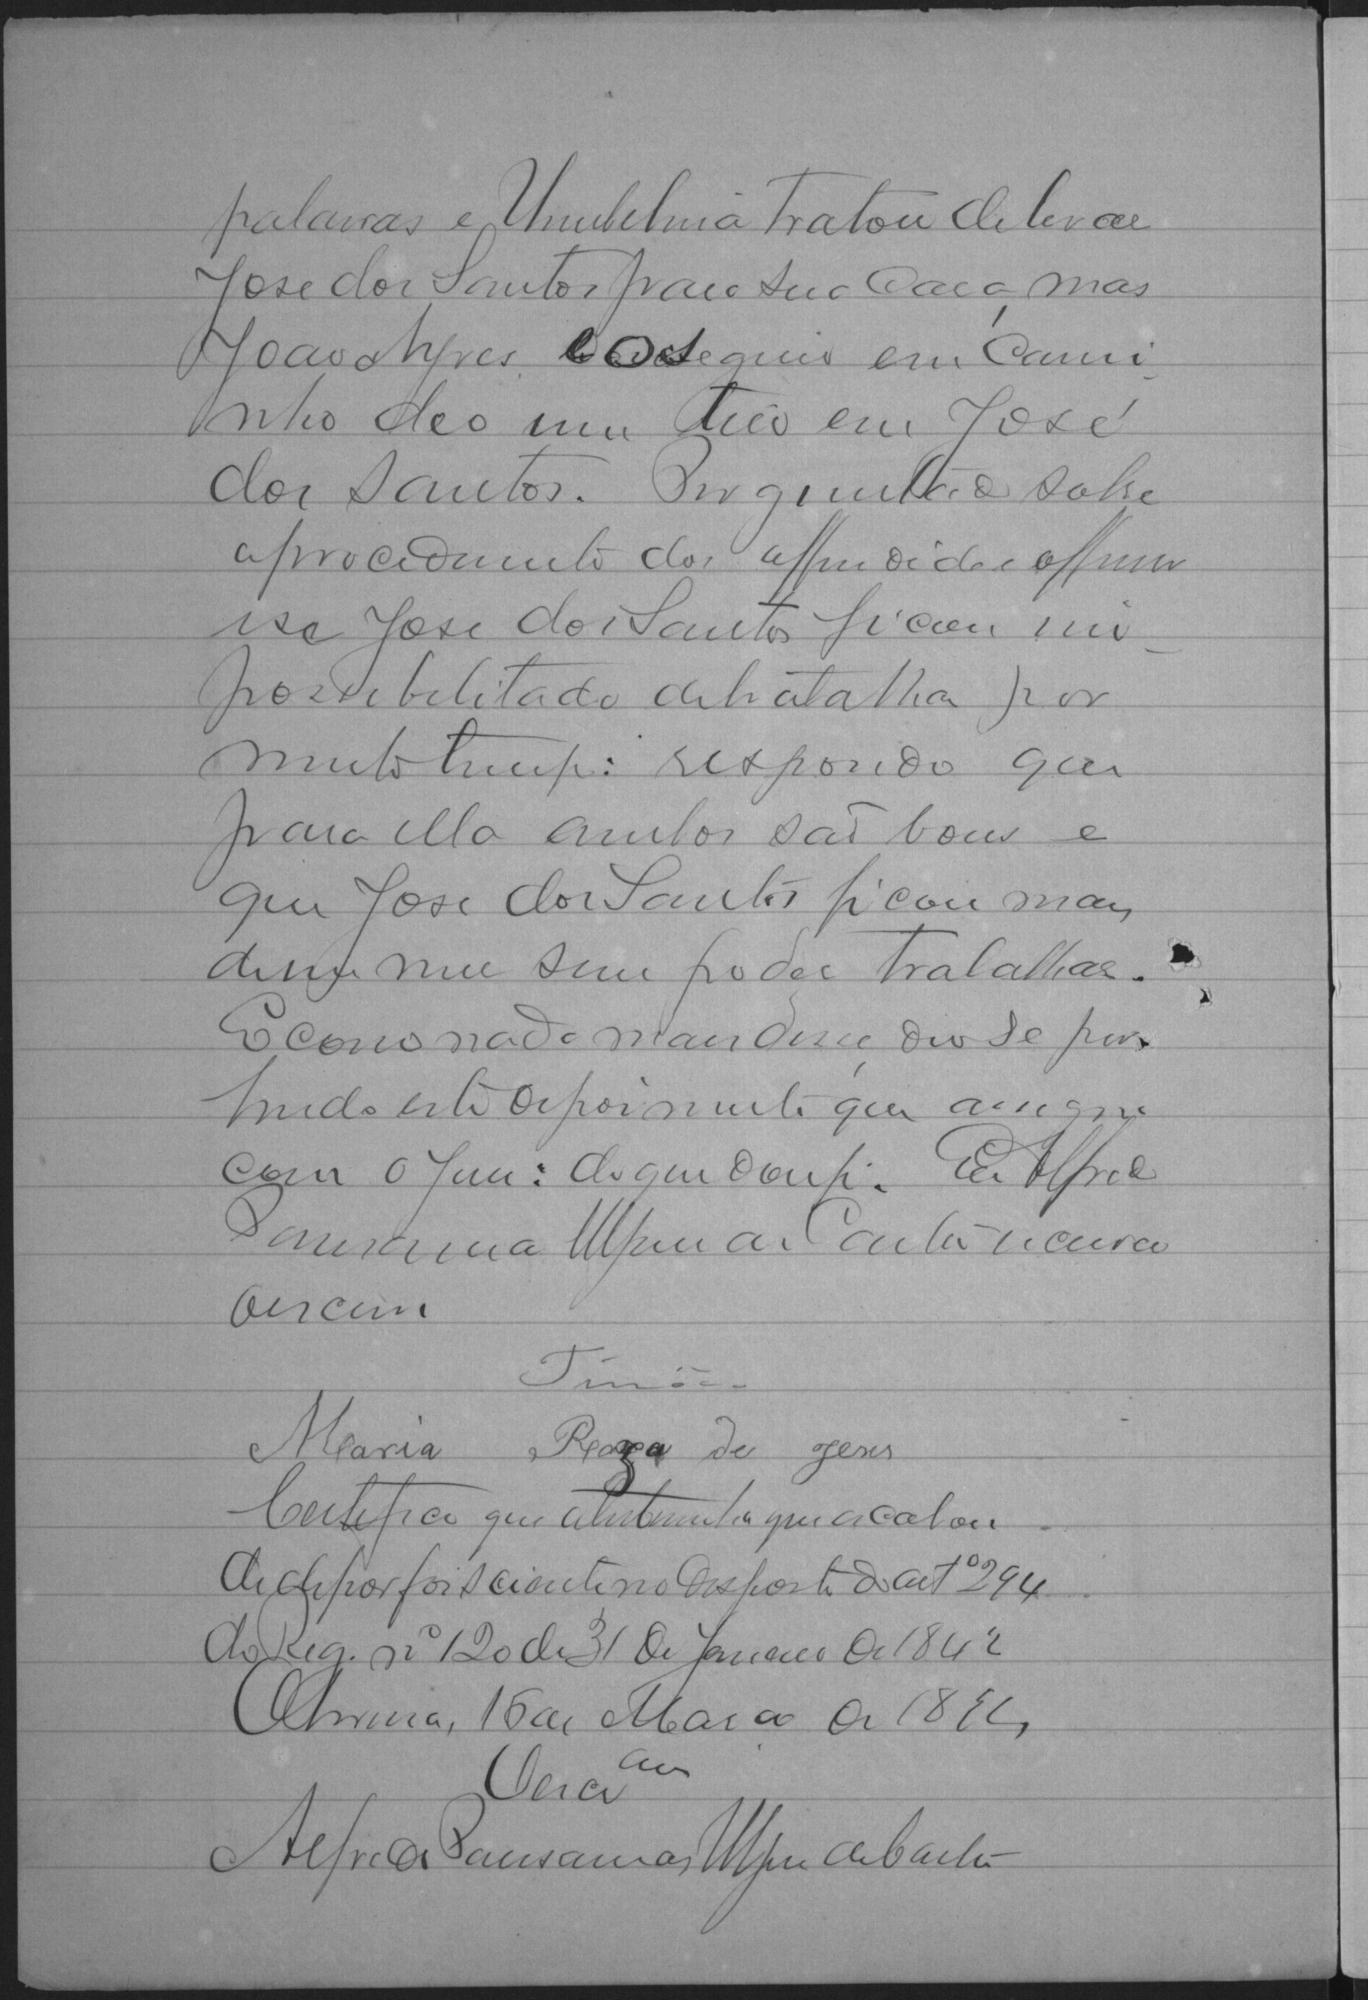 palavras e Umbelina tratou de levar
Jose dos Santos para sua Casa, mas
João Alves os seguio em Cami-
nho deo um tiro em José
dos Santos. Perguntado sobre
o procedimento dos offendidos
e se Jose dos Santos ficou im-
possibilitado de trabalha por
muito tempo: respondo que
para ella ambos são bons e
que Jose dos Santos ficou mais
de um mez sem poder trabalhar.
E como nada mais disse, deo se por
findo este depoimento que assigna
com o Juiz: do que dou fé. Eu Alfredo
de Castro
escrivam
Maria Roza de Jesus
Certifico que a testemunha que acabou
de depor foi sciente no disposto do artº 294
do Reg. nº 120 de 31 de Janeiro de 1842
15 de Março de 189
Escr am
Alfredo de Castro